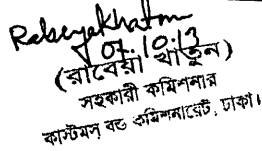 Rabeyakhatun
07.10.13
(রাবেয়া খাতুন)
সহকারী কমিশনার
কাস্টমস্ বন্ড কমিশনারেট, ঢাকা।